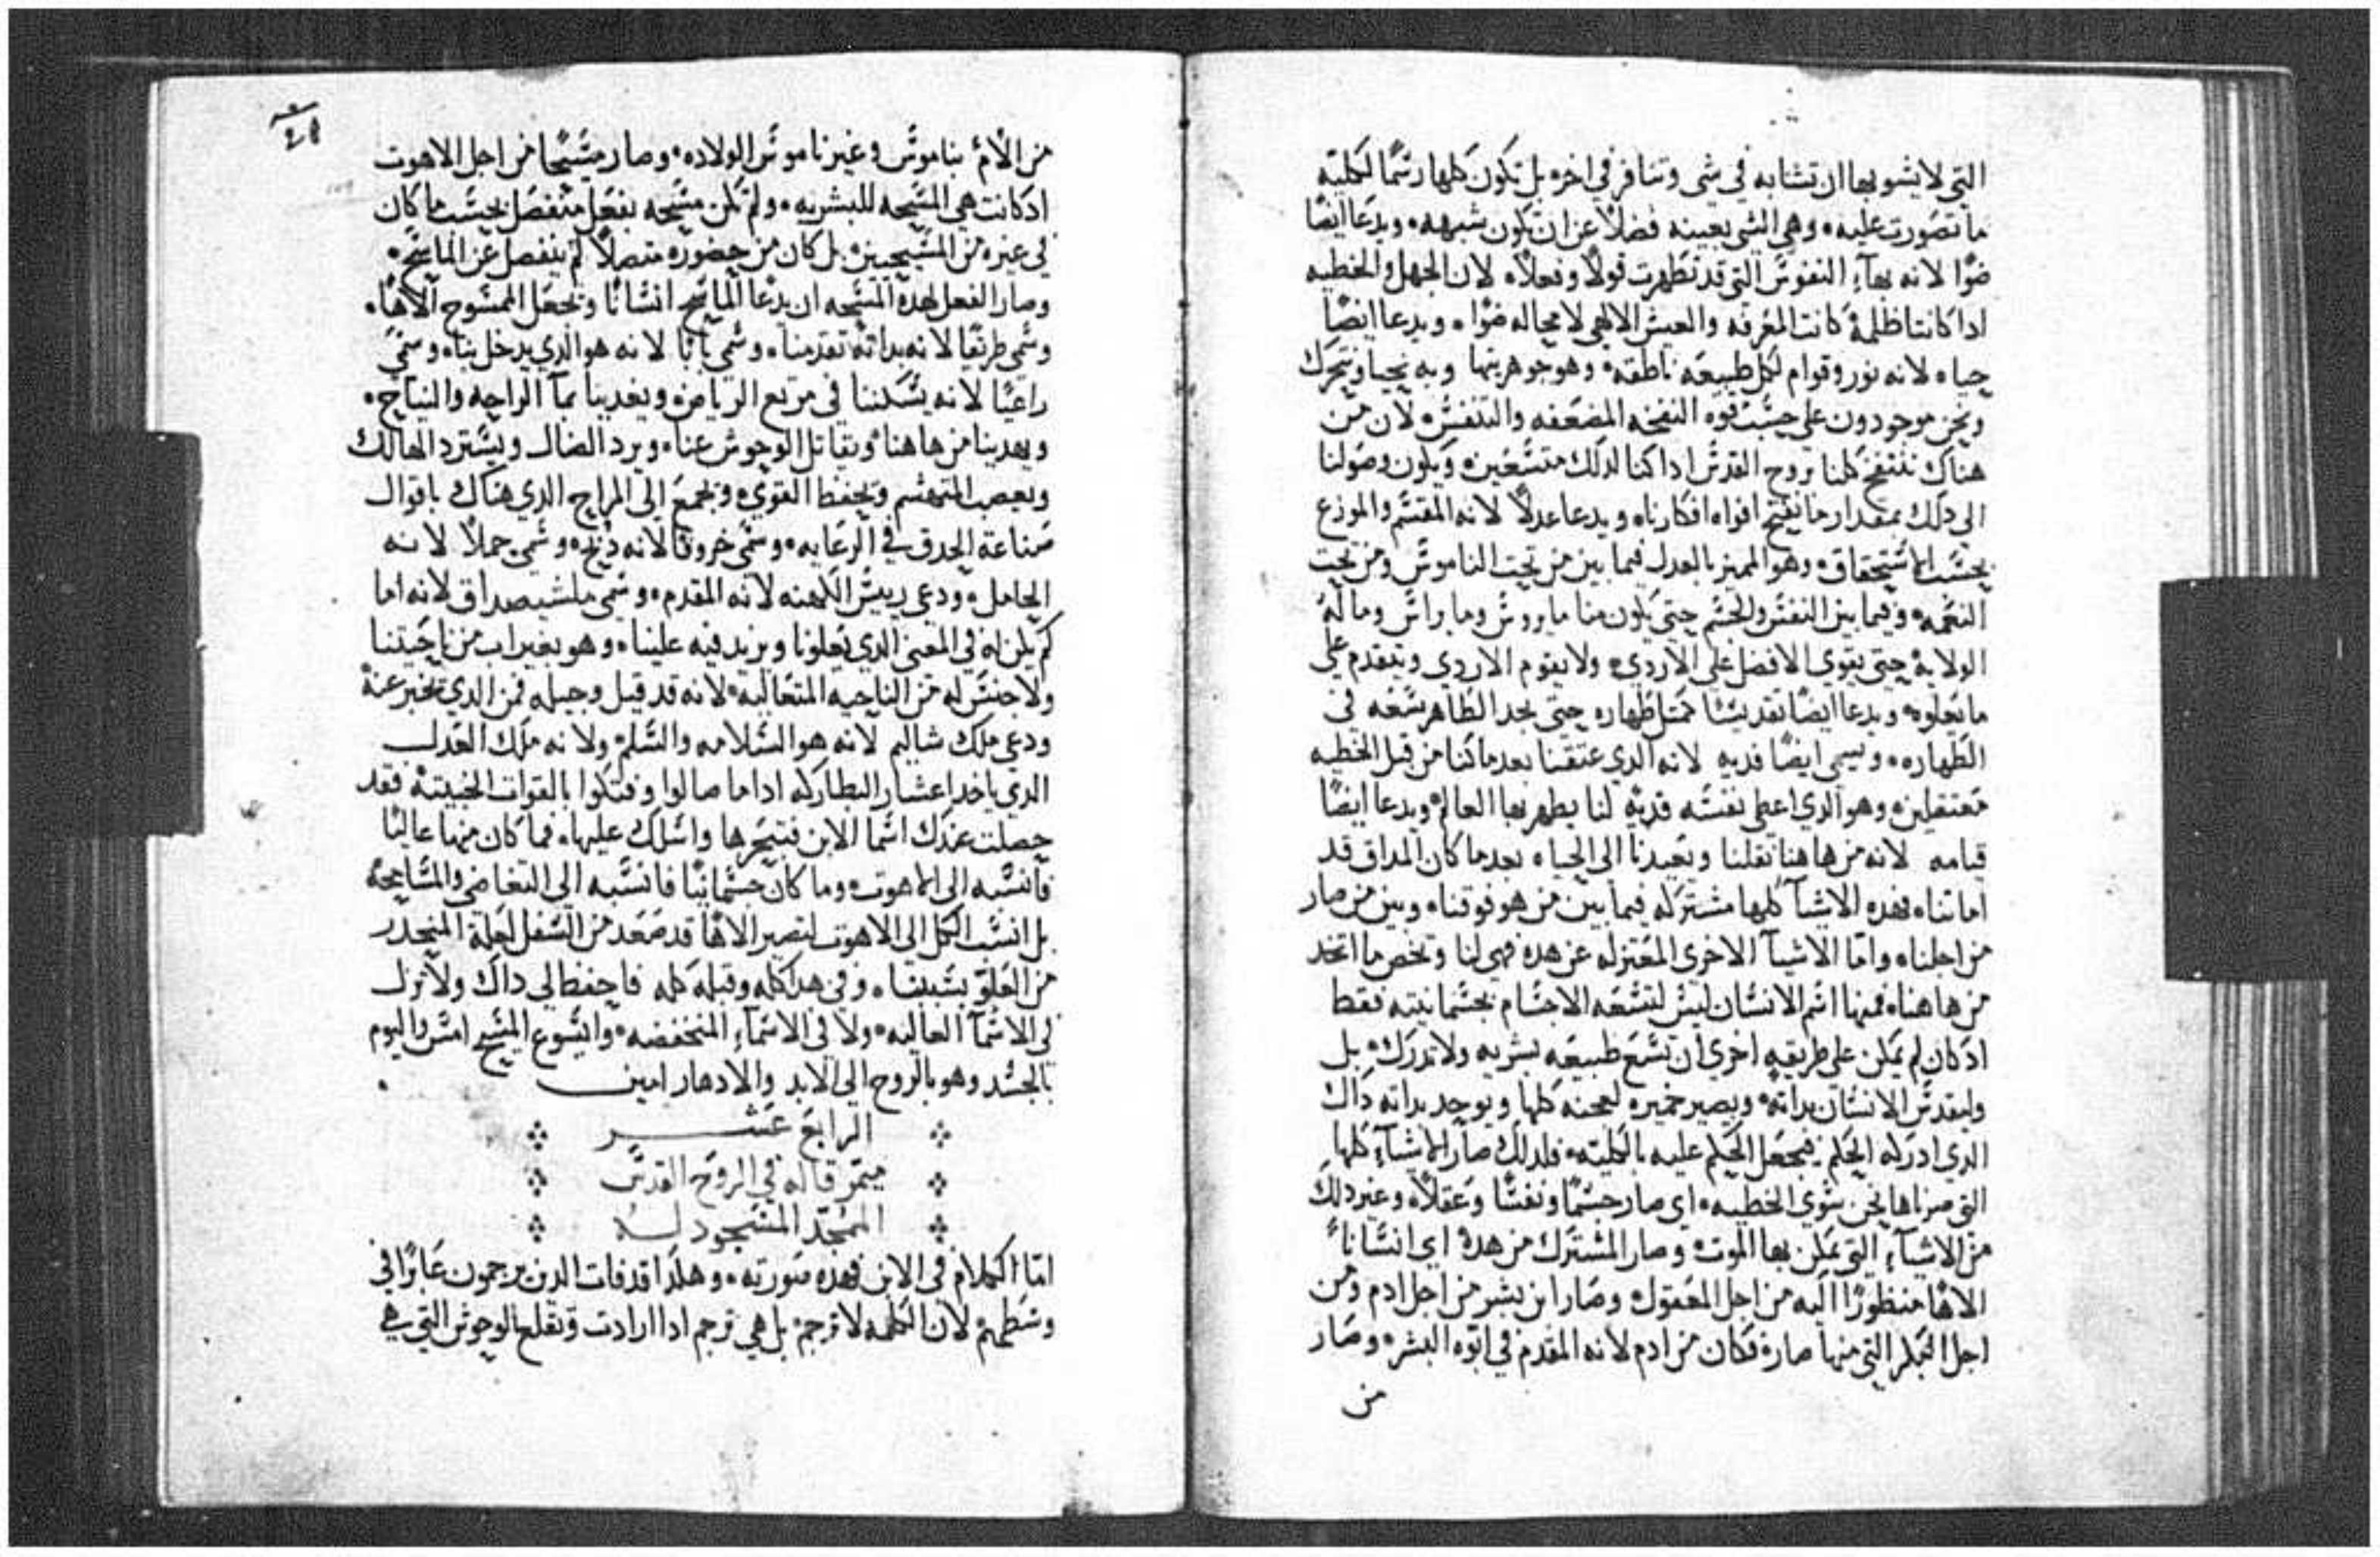 التي لا يشوبها ان تشابه في شي وتنافر في اخره بل تكون كلها رسما لكليه
ما تصورت عليه وهي الشي بعينه فضلا عن ان تكون شبهه ويدعا ايضا
ضوا لانه بهآء النفوس التي قد تطهرت قولا وفعلا لان الجهل والخطيه
ادا كانتا ظلمة كانت المعرفه والعيش الالهي لا محاله ضوا ويدعا ايضا
حياه لانه نور وقوام لكل طبيعه ناطقه وهو جوهريتها وبه نحيا ونتحرك
ونحن موجودون على حسب قوه النفخه المضعفه والتنفس لان من
هناك ننتفخ كلنا بروح القدس ادا كنا لدلك متسعين ويكون وصولنا
الى دلك بمقدار ما نفتح افواه افكارنا ويدعا عدلا لانه المقسم والموزع
بحسب الاستحقاق وهو المميز بالعدل فيما بين من تحت الناموس ومن تحت
النعمه وفيما بين النفس والجسم حتى يكون منا ما يروس وما يراس وما له
الولاية حتى يقوى الافضل على الاردي ولا يقوم الاردي ويتقدم على
ما يعلوه ويدعا ايضا تقديسا كمثل طهاره حتى يجد الطاهر يسعه في
الطهاره ويسمي ايضا فديه لانه الدي عتقنا بعد ما كنا من قبل الخطيه
معتقلين وهو الدي اعطى نفسه فدية لنا يطهر بها العالم ويدعا ايضا
قيامه لانه من هاهنا نقلنا ويعيدنا الى الحياه بعد ما كان المداق قد
اماتنا فهده الاشيآ كلها مشتركه فيما بين من هو فوقنا وبين من صار
من اجلنا واما الاشيآ الاخرى المعتزله عن هده فهي لنا وتخص ما اتخد
من هاهنا فمنها اسم الانسان ليس لتسعه الاجسام بجسمانيته فقط
اد كان لم يمكن على طريقه اخرى ان تسع طبيعه بشريه ولا تدرك بل
وليقدس الانسان بداته ويصير خميره لعجنه كلها ويوحد بداته داك
الدي ادركه الحكم فيجعل الحكم عليه بالكليته فلدلك صار الاشيآء كلها
التي صرناها نحن سوي الخطيه اي صار جسما ونفسا وعقلا وغير دلك
من الاشيآء التي يمكن بها الموت وصار المشترك من هده اي انسانا
الاها منظورا اليه من اجل المعقول وصار ابن بشر من اجل ادم ومن
اجل البكر التي منها صاره فكان من ادم لانه المقدم في ابوه البشر وصار
من
من الام بناموس وغير ناموس الولاده وصار مسيحا من اجل الاهوت
اد كانت هي المسيحه للبشريه ولم تكن مسيحه بفعل منفصل بحسب ما كان
في غيره من المسيحيين بل كان من حضوره متصلا لم ينفصل عن الماسح
وصار الفعل لهده المسحه ان يدعا الماسح انسانا ويجعل الممسوح الاها
وسمي طريقا لانه بداته تقدمنا وسمي بابا لانه هو الدي يدخل بنا وسمي
راعيا لانه يسكننا في مرتع الرياض ويغدينا بمآ الراحه والنياح
ويهدينا من هاهنا ويقاتل الوحوش عنا ويرد الضال ويسترد الهالك
ويعصب المتهشم ويحفظ القوي ويجمع الى المراح الدي هناك باقوال
صناعة الحدق في الرعايه وسمي خروفا لانه دبح وسمي حملا لانه
الحامل ودعي رييس الكهنه لانه المقدم وسمي ملشيصداق لانه اما
كم يكن له في المعنى الدي يعلونا ويزيد فيه علينا وهو بغير اب من ناحيتنا
ولا جنس له من الناحيه المتعاليه لانه قد قيل وجيله فمن الدي يخبر عنه
ودعي ملك شاليم لانه هو السلامه والسلم ولانه ملك العدل
الدي ياخد اعشار البطاركه اداما صالوا وفتكوا بالقوات الخبيته فقد
حصلت عندك اسما الابن فتبحرها واسلك عليها فما كان منها عاليا
فانسبه الى الاهوت وما كان جسمانيا فانسبه الى التغاضي والمسامحه
بل انسب الكل الى الاهوت لتصير الاها قد صعد من السفل لعلة المنحدر
من العلو بسببنا وفي هدا كله وقبله كله فاحفظ لي داك ولا تزل
في الاسمآ العاليه ولا في الاسمآء المنخفضه وايسوع المسيح امس واليوم
بالجسد وهو بالروح الى الابد والادهار امين
الرابع عشر
ميمر قاله في الروح القدس
الممجد المسجود له
اما الكلام في الابن فهده صورته وهكدا قد فات الدين يرجمون عابرا في
وسطهم لان الكلمه لا ترجم بل هي ترجم ادا ارادت وتقلع الوحوش التي هي